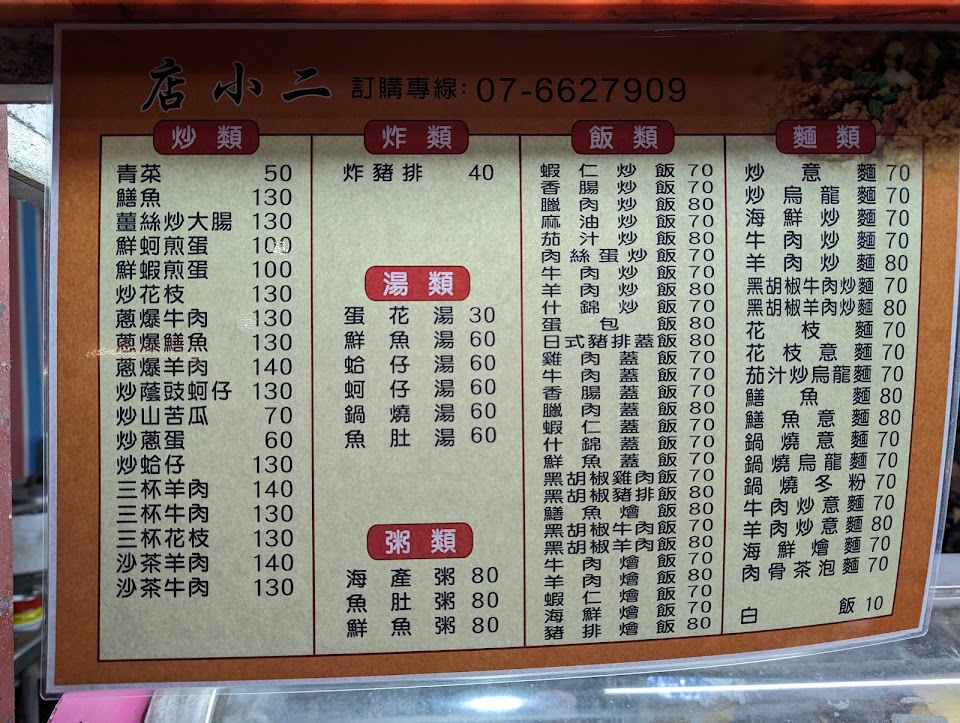 店小二 訂購專線: 07-6627909
炒類
青菜 50
鱔魚 130
薑絲炒大腸 130
鮮蚵煎蛋 100
鮮蝦煎蛋 100
炒花枝 130
蔥爆牛肉 130
蔥爆鱔魚 130
蔥爆羊肉 140
炒蔭豉蚵仔 130
炒山苦瓜 70
炒蔥蛋 60
炒蛤仔 130
三杯羊肉 140
三杯牛肉 130
三杯花枝 130
沙茶羊肉 140
沙茶牛肉 130
炸類
炸豬排 40
湯類
蛋花湯 30
鮮魚湯 60
蛤仔湯 60
蚵仔湯 60
鍋燒湯 60
魚肚湯 60
粥類
海產粥 80
魚肚粥 80
鮮魚粥 80
飯類
蝦仁炒飯 70
香腸炒飯 70
臘肉炒飯 80
麻油炒飯 70
茄汁炒飯 80
肉絲蛋炒飯 70
牛肉炒飯 70
羊肉炒飯 80
什錦炒飯 70
蛋包飯 80
日式豬排蓋飯 80
雞肉蓋飯 70
牛肉蓋飯 70
香腸蓋飯 70
臘肉蓋飯 80
蝦仁蓋飯 70
什錦蓋飯 70
鮮魚蓋飯 80
黑胡椒雞肉飯 70
黑胡椒豬排飯 80
鱔魚燴飯 80
黑胡椒牛肉飯 70
黑胡椒羊肉飯 80
牛肉燴飯 70
羊肉燴飯 80
蝦仁燴飯 70
海鮮燴飯 70
豬排燴飯 80
麵類
炒意麵 70
炒烏龍麵 70
海鮮炒麵 70
牛肉炒麵 70
羊肉炒麵 80
黑胡椒牛肉炒麵 70
黑胡椒羊肉炒麵 80
花枝麵 70
花枝意麵 70
茄汁炒烏龍麵 70
鱔魚麵 80
鱔魚意麵 80
鍋燒意麵 70
鍋燒烏龍麵 70
鍋燒冬粉 70
牛肉炒意麵 70
羊肉炒意麵 80
海鮮燴麵 70
肉骨茶泡麵 70
白飯 10